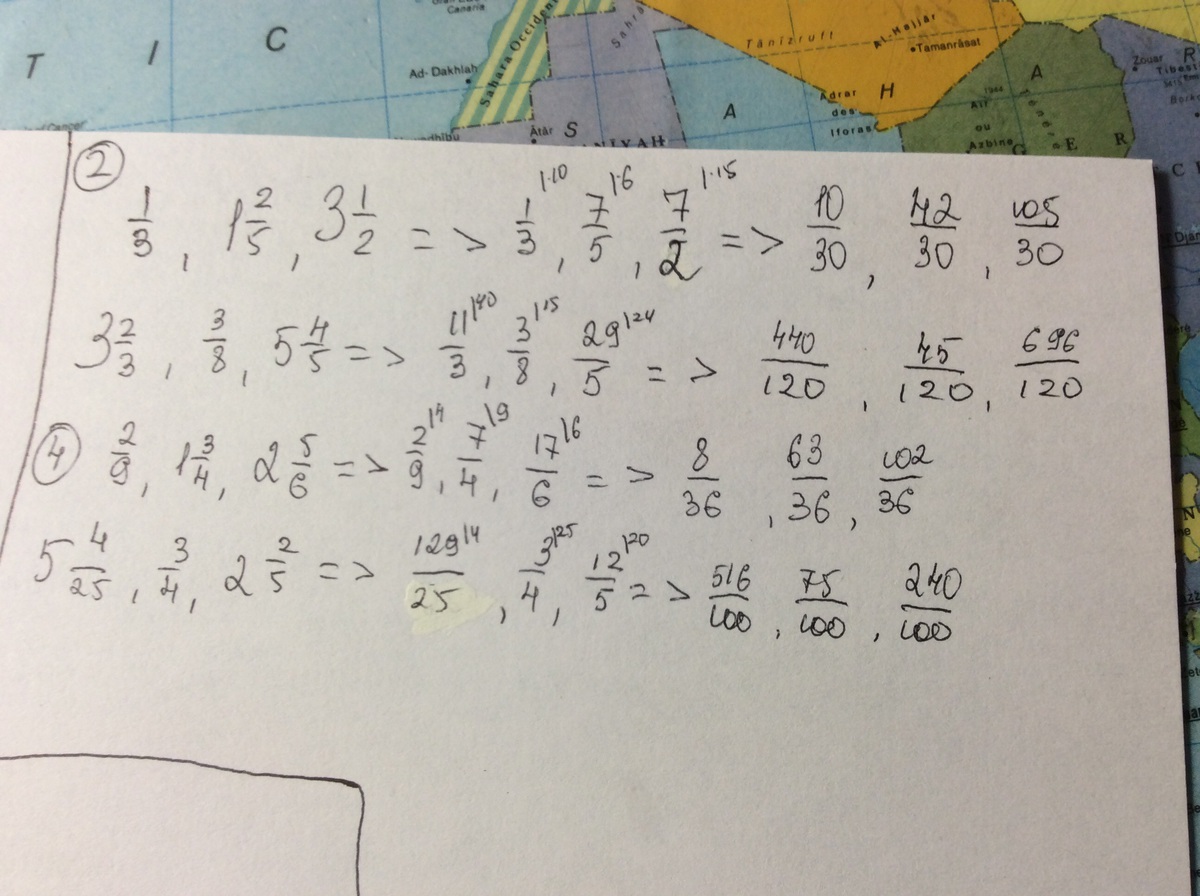 T I C
Canaria
Ad- Dakhlah
Sahara Occident
Sahra
Tănîzruft
Al-Hajjar
Tamanrásat
Adrar
des
Iforas
H
A
Aïr
ou
Azbine
A
Zouar
R
Tibest
Atâr
S
NIYAH
G E R
②
1/3, 1 2/5, 3 1/2 => 1/3 |·10, 7/5 |·6, 7/2 |·15 => 10/30, 42/30, 105/30
3 2/3, 3/8, 5 4/5 => 11/3 |·40, 3/8 |·15, 29/5 |·24 => 440/120, 45/120, 696/120
④ 2/9, 1 3/4, 2 5/6 => 2/9 |4, 7/4 |9, 17/6 |6 => 8/36, 63/36, 102/36
5 4/25, 3/4, 2 2/5 => 129/25 |4, 3/4 |25, 12/5 |20 => 516/100, 75/100, 240/100